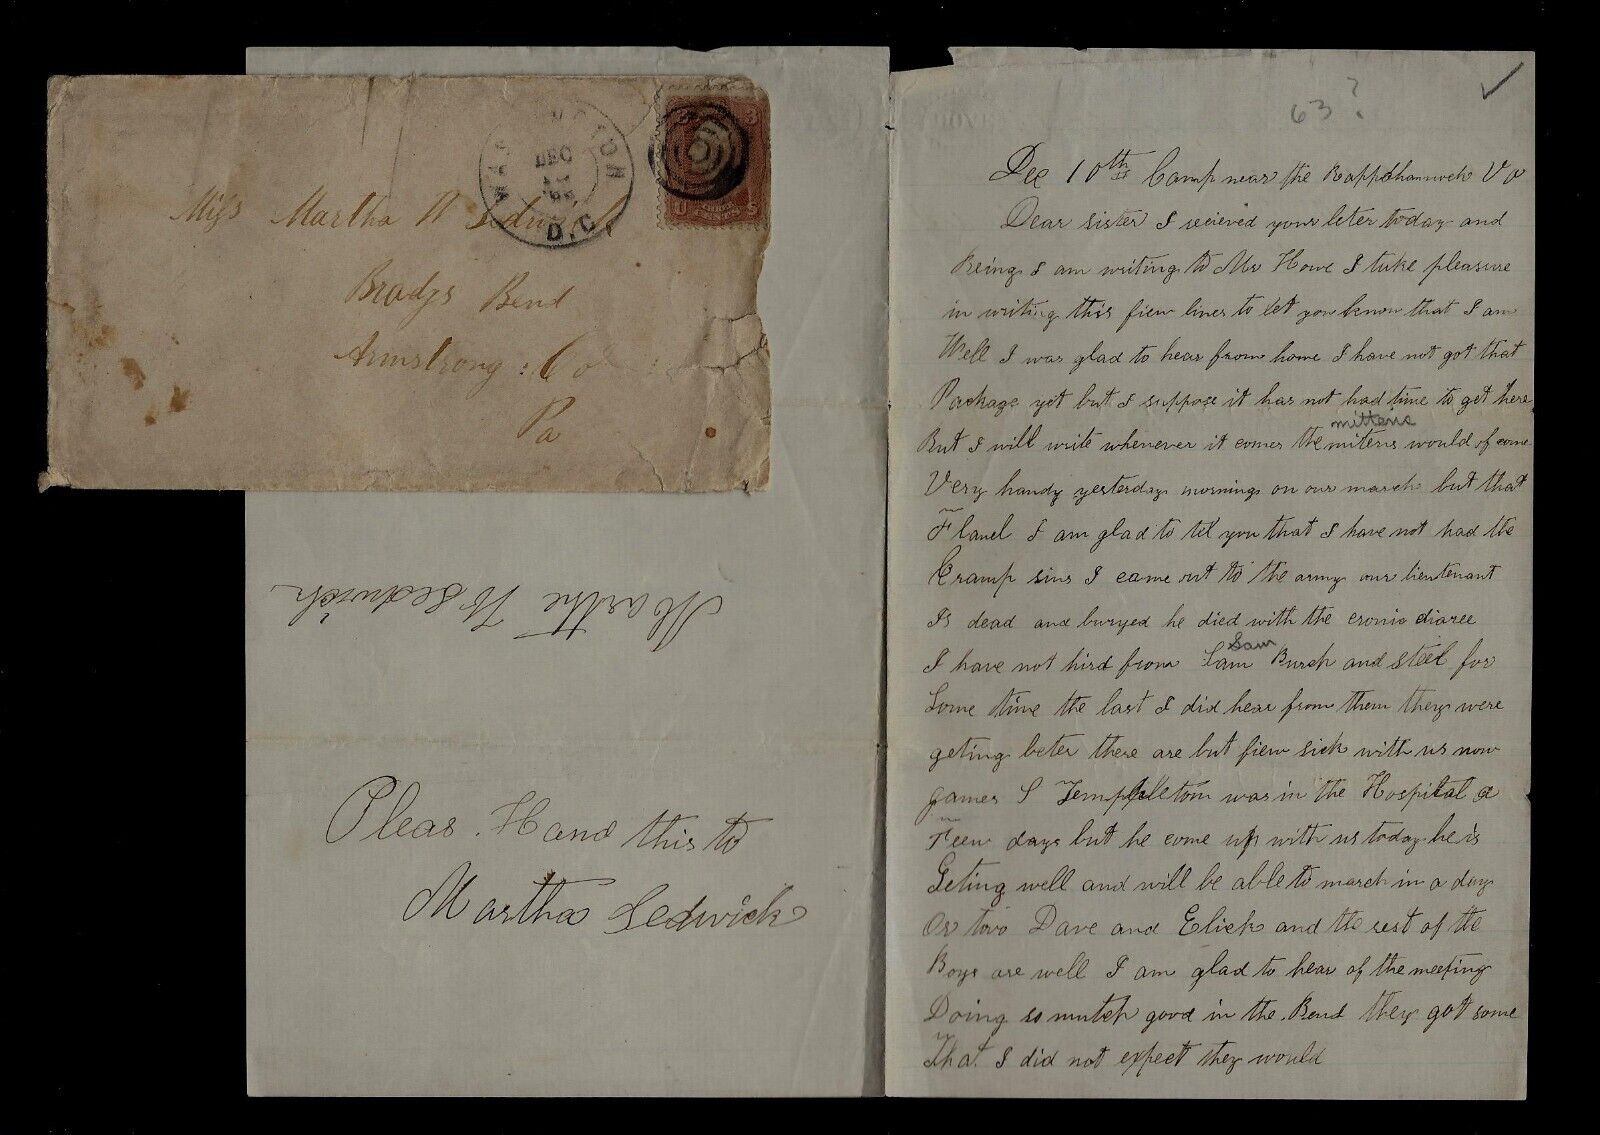 WASHINGTON
DEC
D.C.
3
U S
CENTS
Miss Martha W Sedwick
Bradys Bend
Armstrong : Co
Pa
Martha W Sedwich
Pleas Hand this to
Martha Sedwick
63?
Dec 10th Camp near the Rappahannock Va
Dear sister I recieved your leter today and
Being I am writing to Mr Howe I take pleasure
in writing this fiew lines to let you know that I am
Well I was glad to hear from home I have not got that
Package yet but I suppose it has not had time to get here
mittens
But I will write whenever it comes the mitens would of come
Very handy yesterday morning on our march but that
Flanel I am glad to tel you that I have not had the
Cramp sins I came out to the army our lieutenant
Is dead and buryed he died with the cronic diaree
Sam
I have not hird from Sam Burch and steel for
Some time the last I did hear from them they were
geting beter there are but fiew sick with us now
James S Templeton was in the Hospital a
Feew days but he come up with us today he is
Geting well and will be able to march in a day
Or two Dave and Elick and the rest of the
Boys are well I am glad to hear of the meeting
Doing so mutch good in the Bend they got some
That I did not expect they would